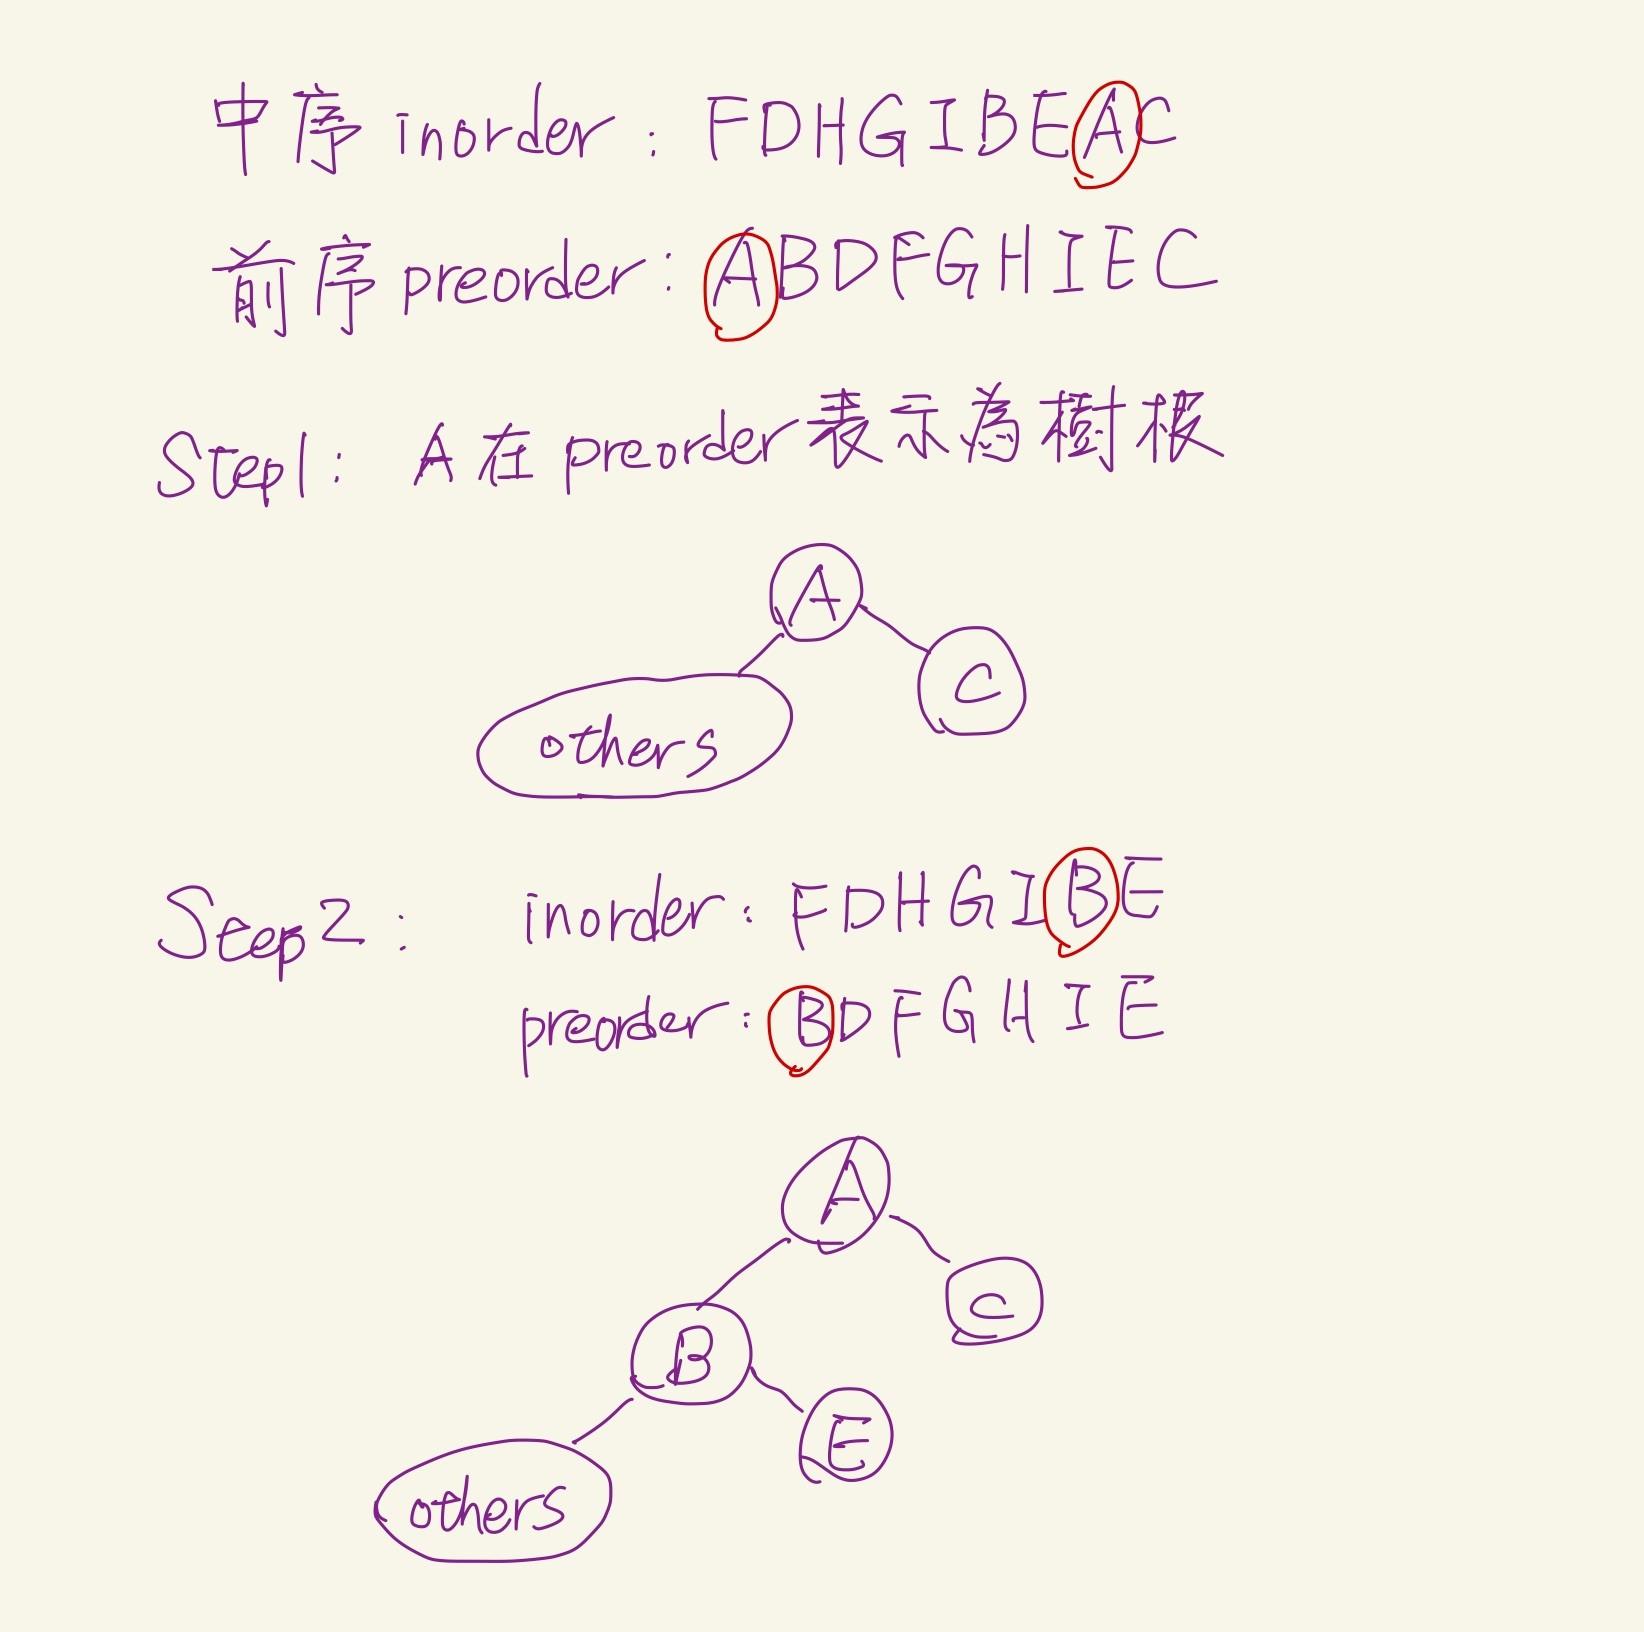 中序 inorder: FDHGIBEAC
前序 preorder: ABDFGHIEC
Step1: A在preorder表示為樹根
A
C
others
Step2: inorder: FDHGIBE
preorder: BDFGHIE
A
C
B
E
others